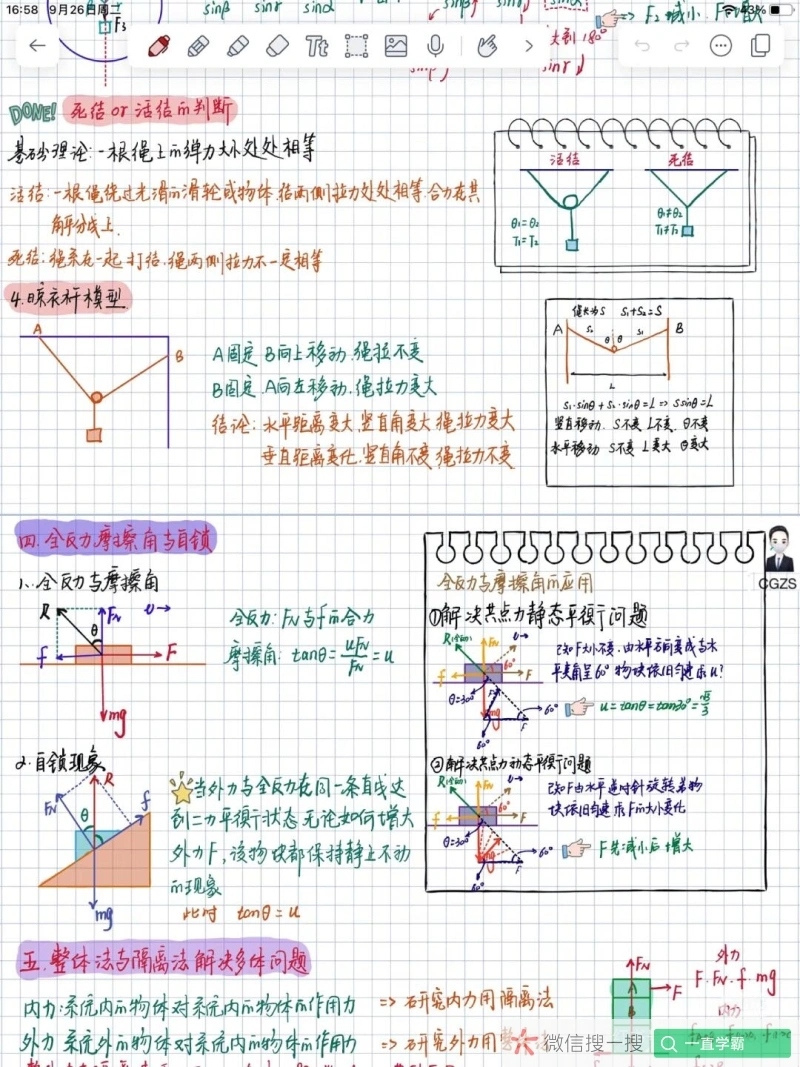 16:58 9月26日周二
43%
F₃
sinβ sinγ sinα
sinα
=> F₂减小 F
大到180°
sinβ
sinγ
Tt
DONE!
死结or活结的判断
基础理论:一根绳上的弹力大小处处相等
活结:一根绳绕过光滑的滑轮或物体.绳两侧拉力处处相等.合力在其
角平分线上.
死结:绳系在一起打结.绳两侧拉力不一定相等
活结 死结
θ₁=θ₂
T₁=T₂
θ₁≠θ₂
T₁≠T₂
4.晾衣杆模型
A
B
A固定 B向上移动.绳拉不变
B固定.A向左移动.绳拉力变大
结论:水平距离变大,竖直角变大 绳拉力变大
垂直距离变化.竖直角不变,绳拉力不变
绳长为S S₁+S₂=S
A S₂ θ θ S₁ B
L
S₁·sinθ+S₂·sinθ=L => Ssinθ=L
竖直移动. S不变 L不变. θ不变
水平移动 S不变 L变大 θ变大
四.全反力摩擦角与自锁
1.全反力与摩擦角
R FN υ→
θ
f F
mg
全反力:FN与f的合力
摩擦角: tanθ=uFN/FN=u
2.自锁现象
R
FN f
θ
mg
当外力与全反力在同一条直线达
到二力平衡状态 无论如何增大
外力F,该物块都保持静止不动
的现象
此时 tanθ=u
CGZS
全反力与摩擦角的应用
①解决共点力静态平衡问题
FN υ→
60°
f F
θ=30° mg
60° F
60°
已知F大小不变.由水平方向变成与水
平夹角呈60°物块依旧匀速求u?
u=tanθ=tan30°=√3/3
②解决共点力动态平衡问题
FN υ→
60°
f F
θ=30° mg
60° F
60°
已知F由水平逆时针旋转若物
块依旧匀速求F的大小变化
F先减小后增大
五.整体法与隔离法解决多体问题
内力:系统内的物体对系统内的物体的作用力 => 研究内力用隔离法
外力 系统外的物体对系统内的物体的作用力 => 研究外力用
FN
A F
B
外力
F.FN.f.mg
内力
微信搜一搜 一直学霸